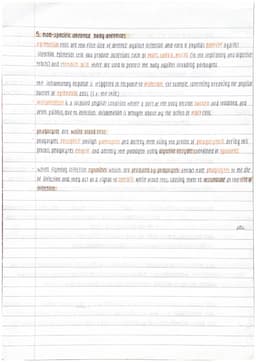 5. non-specific defence: body defences
epithelial cells are the first line of defence against infection and form a physical barrier against
infection. Epithelial cells also produce secretions such as tears, saliva, mucus (in the respiratory and digestive
tracts) and stomach acid which are used to protect the body against invading pathogens.
the inflammatory response is triggered in response to infection, for example, something breaking the physical
barrier of epithelial cells (i.e. the skin).
inflammation is a localised physical condition where a part of the body become swollen and reddened, and
often painful, due to infection. Inflammation is brought about by the action of mast cells.
phagocytes are white blood cells.
phagocytes recognise foreign pathogens and destroy them using the process of phagocytosis. during this
process, phagocytes engulf and destroy the pathogens using digestive enzymes contained in lysosomes.
when fighting infection cytokines which are produced by phagocytes attract more phagocytes to the site
of infection and they act as a signal to specific white blood cells, causing them to accumulate at the site of
infection.